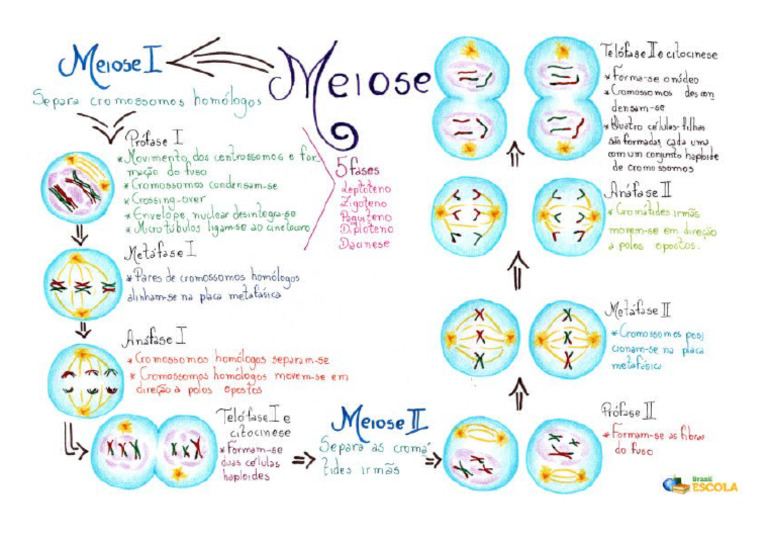 Meiose
Meiose I
Separa cromossomos homólogos
Prófase I
* Movimento dos centrossomos e for
mação do fuso
* Cromossomos condensam-se
* Crossing-over
* Envelope nuclear desintegra-se
* Microtúbulos ligam-se ao cinetócoro
5 fases
Leptóteno
Zigóteno
Paquíteno
Diplóteno
Diacinese
Metáfase I
* Pares de cromossomos homólogos
alinham-se na placa metafásica
Anáfase I
* Cromossomos homólogos separam-se
* Cromossomos homólogos movem-se em
direção a polos opostos
Telófase I e
citocinese
* Formam-se
duas células
haploides
Meiose II
Separa as cromá
tides irmãs
Prófase II
* Formam-se as fibras
do fuso
Metáfase II
* Cromossomos posi
cionam-se na placa
metafásica
Anáfase II
* Cromátides irmãs
movem-se em direção
a polos opostos.
Telófase II e citocinese
* Forma-se o núcleo
* Cromossomos descon
densam-se
* Quatro células-filhas
são formadas, cada uma
com um conjunto haploide
de cromossomos
Brasil
ESCOLA